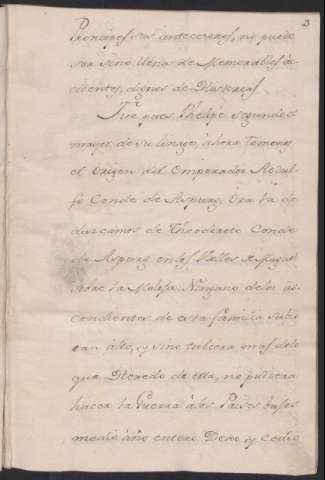 3
Principes sus antecesores, no puede
ser sino llena de Memorables ac
cidentes, dignos de Historias.
Fue pues Phelipe segundo el
mayor de su linage, ahora tomemos
el origen del Emperador Rodul
fo Conde de Aspurg, ora la de
duzcamos de Theodorete Conde
de Aspurg en los Valles de
sobre la Mosela. Ninguno de los as
cendientes de esta familia subio
tan alto, y sino tubiera mas de lo
que Heredo de ella, no pudiera
hacer la Guerra á los Paises bajos
medio año entero. Dexo, y cedio